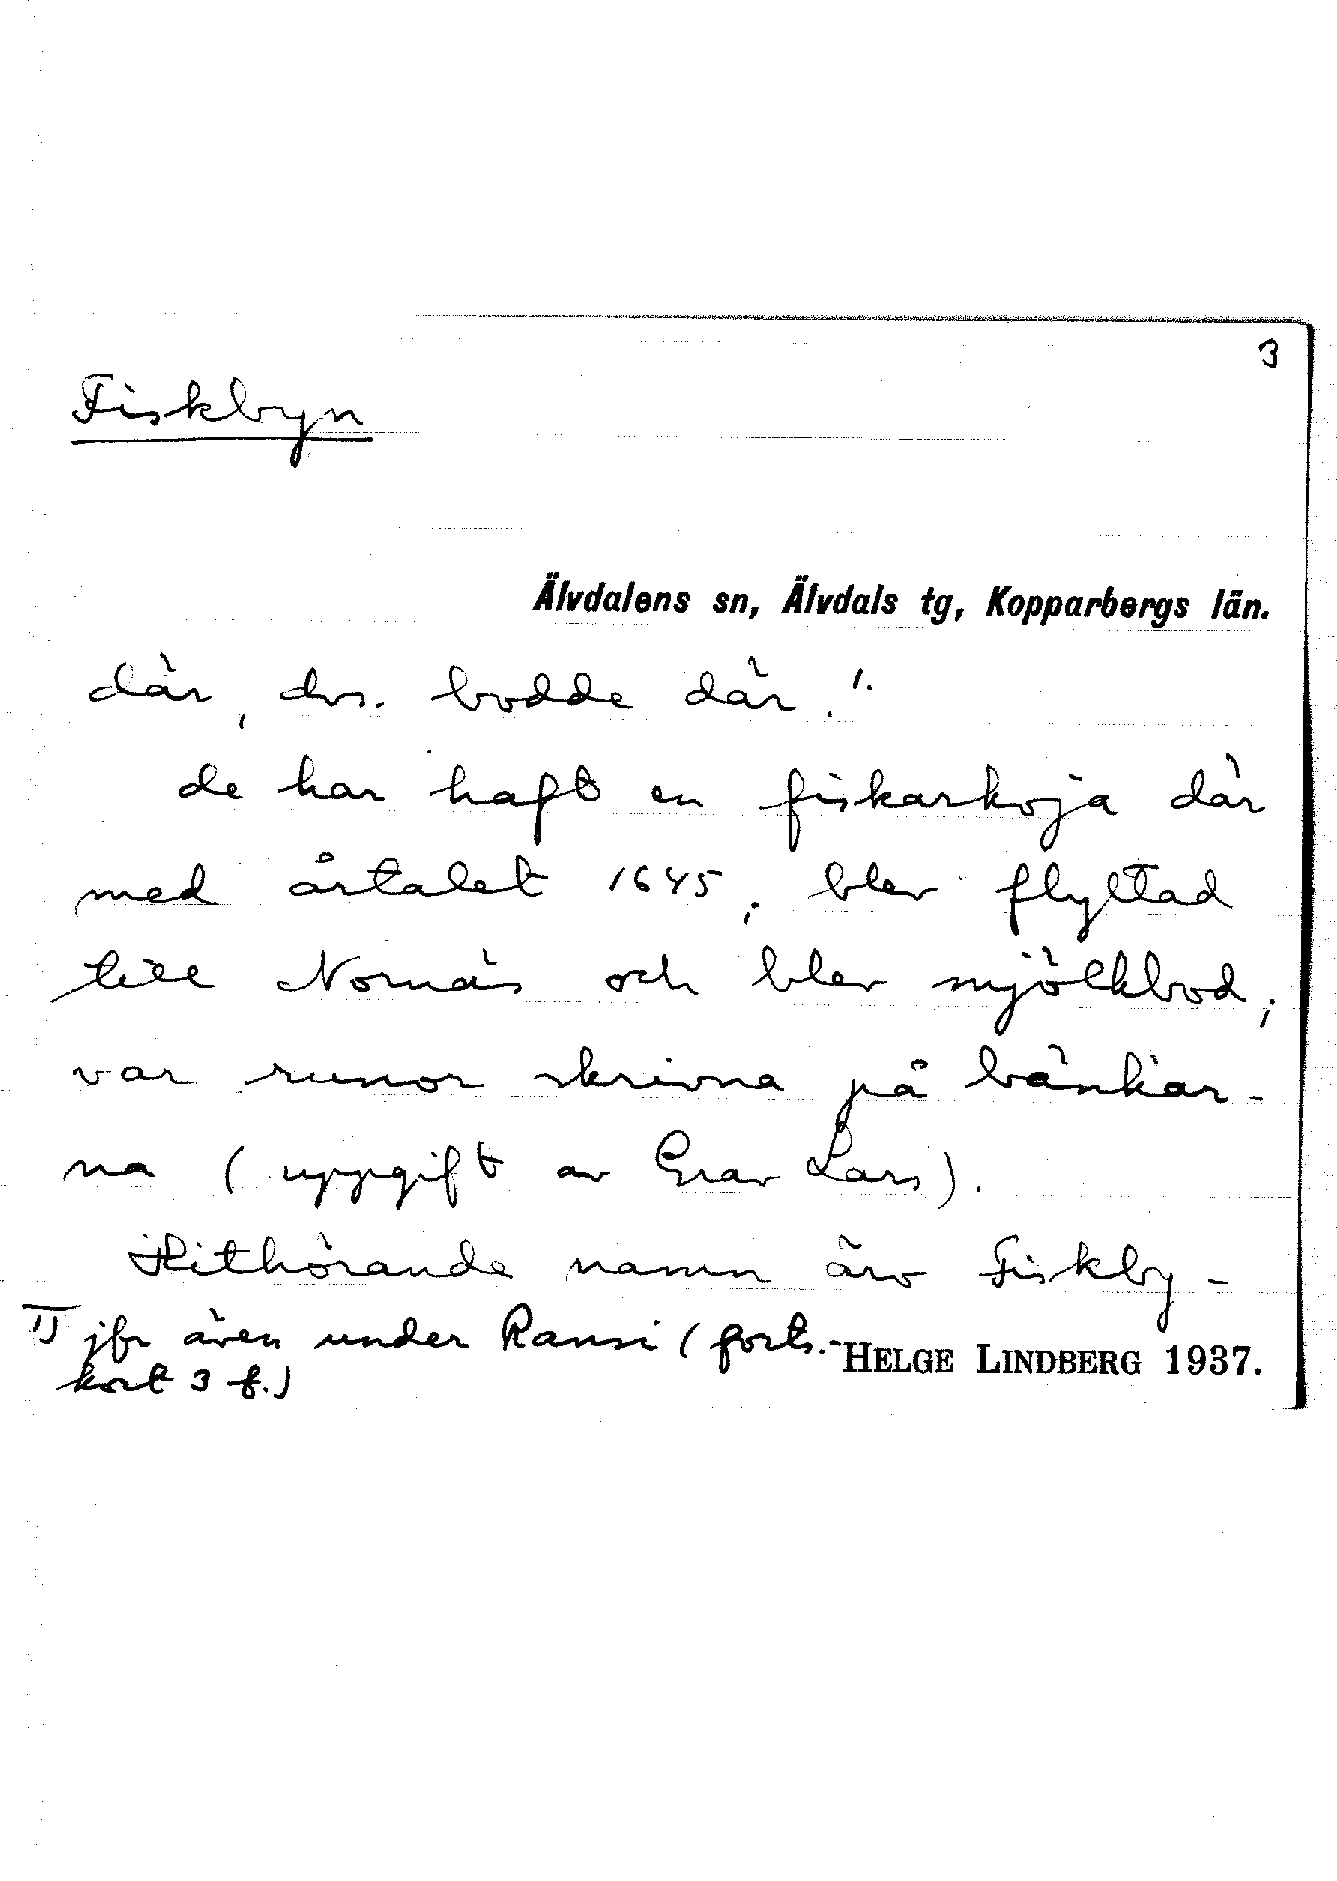 3
Fiskbyn
Älvdalens sn, Älvdals tg, Kopparbergs län.
där, dvs. bodde där.
de har haft en fiskarkoja där
med årtalet 1645; blev flyttad
till Nornäs och blev mjölkbod;
var runor skrivna på bänkar-
na (uppgift av Grav Lars).
Hithörande namn äro Fiskby-
1) jfr även under Ransi (forts.-
kort 3 f.)
HELGE LINDBERG 1937.